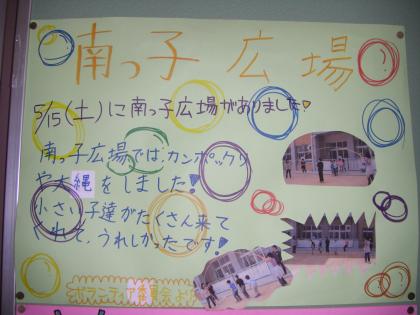 南っ子広場
5/15(土)に南っ子広場がありました♥
南っ子広場では、カンポックリ
や大縄をしました!
小さい子達がたくさん来て
くれて、うれしかったです!
ボランティア委員会より